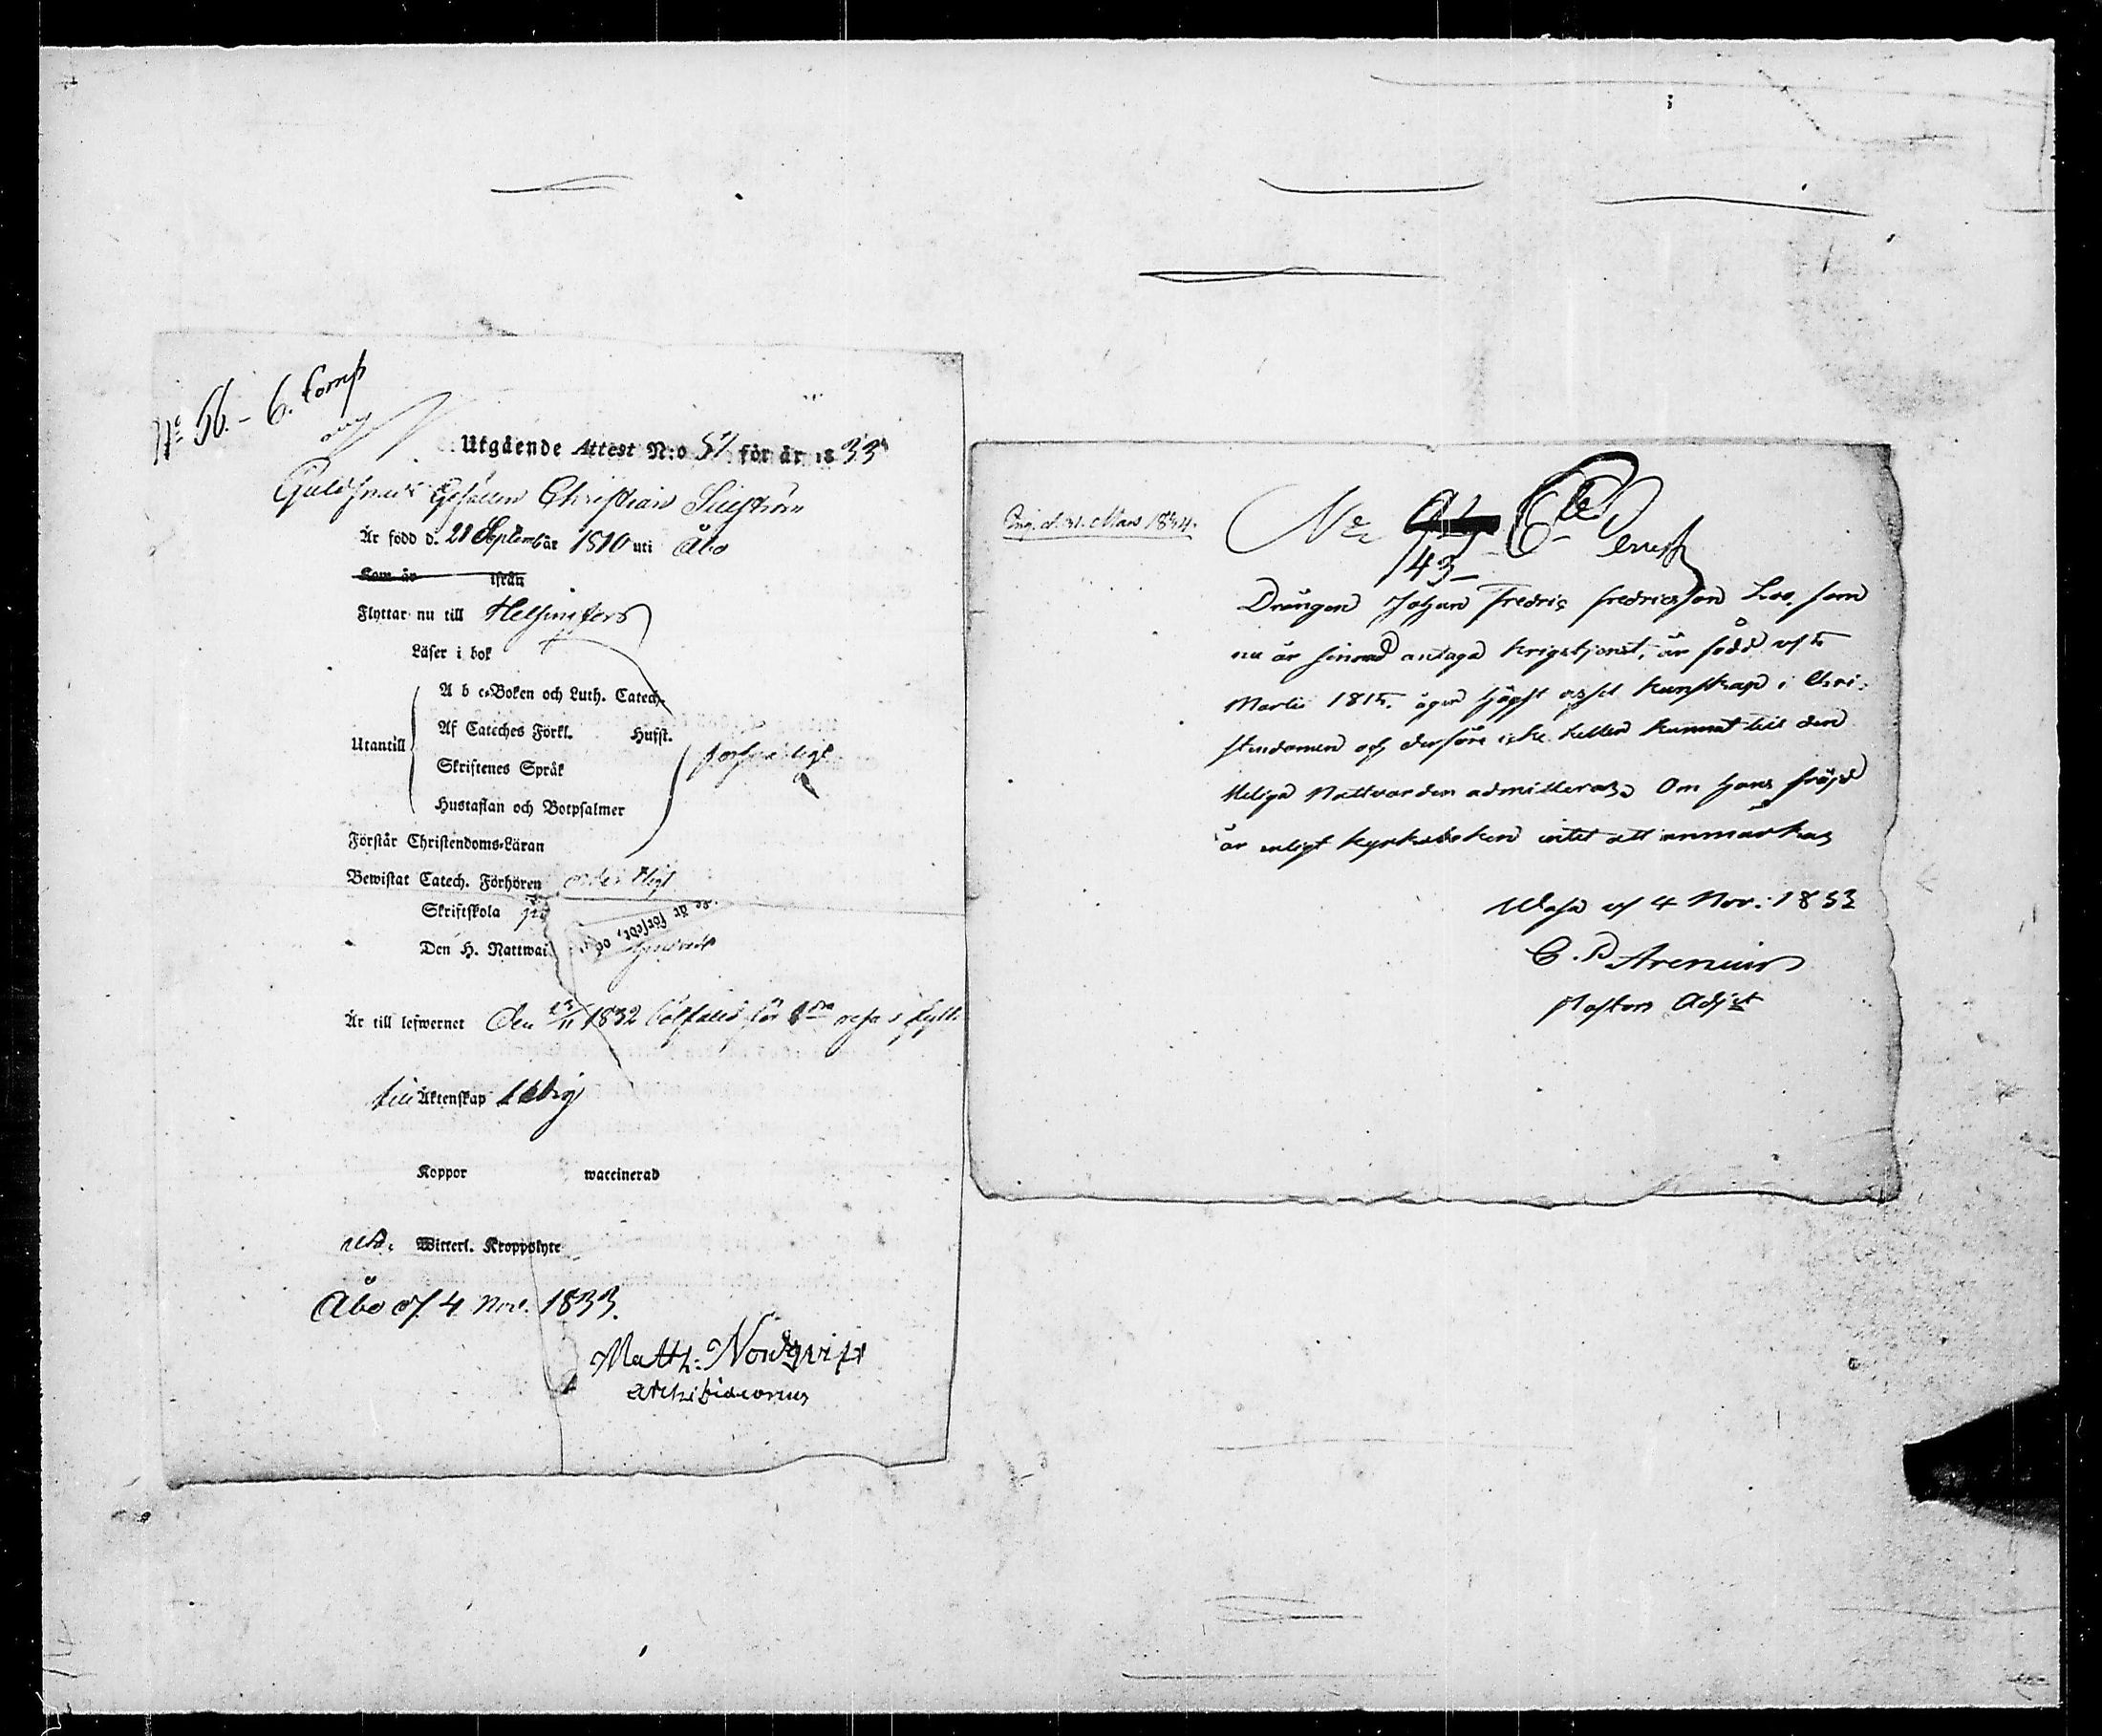 No 56. - 6. Comp
Utgående Attest N:o 57 för år 1833
Guldsmeds Gesällen Christian
Är född d. 21 September 1810 uti Åbo
Kom år ifrån
Flyttar nu till Helsingfors
Läser i bok
A b c-Boken och Luth. Catech.
Af Cateches Förkl. Husf.
Utantill
Skriftenes Språk
Hustaflan och Botpsalmer
Förstår Christendoms-Läran
Bewistat Catech. Förhören ordentligt
Skriftskola
Den H. Nattwar
är försedt, och
Är till lefwernet Den 23/11 1832 bötfäld för 1sta resa s fylleri
till Äktenskap ledig
Koppor waccinerad
Witterl. Kroppslyte
Åbo d. 4 Nov. 1833.
Matth: Nordqvist
Archidiaconus
d. 31. Mars 1834.
No
43
Drängen Johan Fredric Fredricsson Loo, som
nu är sinnad antaga krigstjenst, är född d. 5
Martii 1815. äger högst ringa kunskap i Chri-
stendomen och derföre icke heller kunnat till den
Heliga Nattvarden admitteras. Om hans fräjd
är enligt kyrkoboken intet att anmärka,
Wasa d. 4 Nov: 1833
C. D Arenius
Pastors Adjt